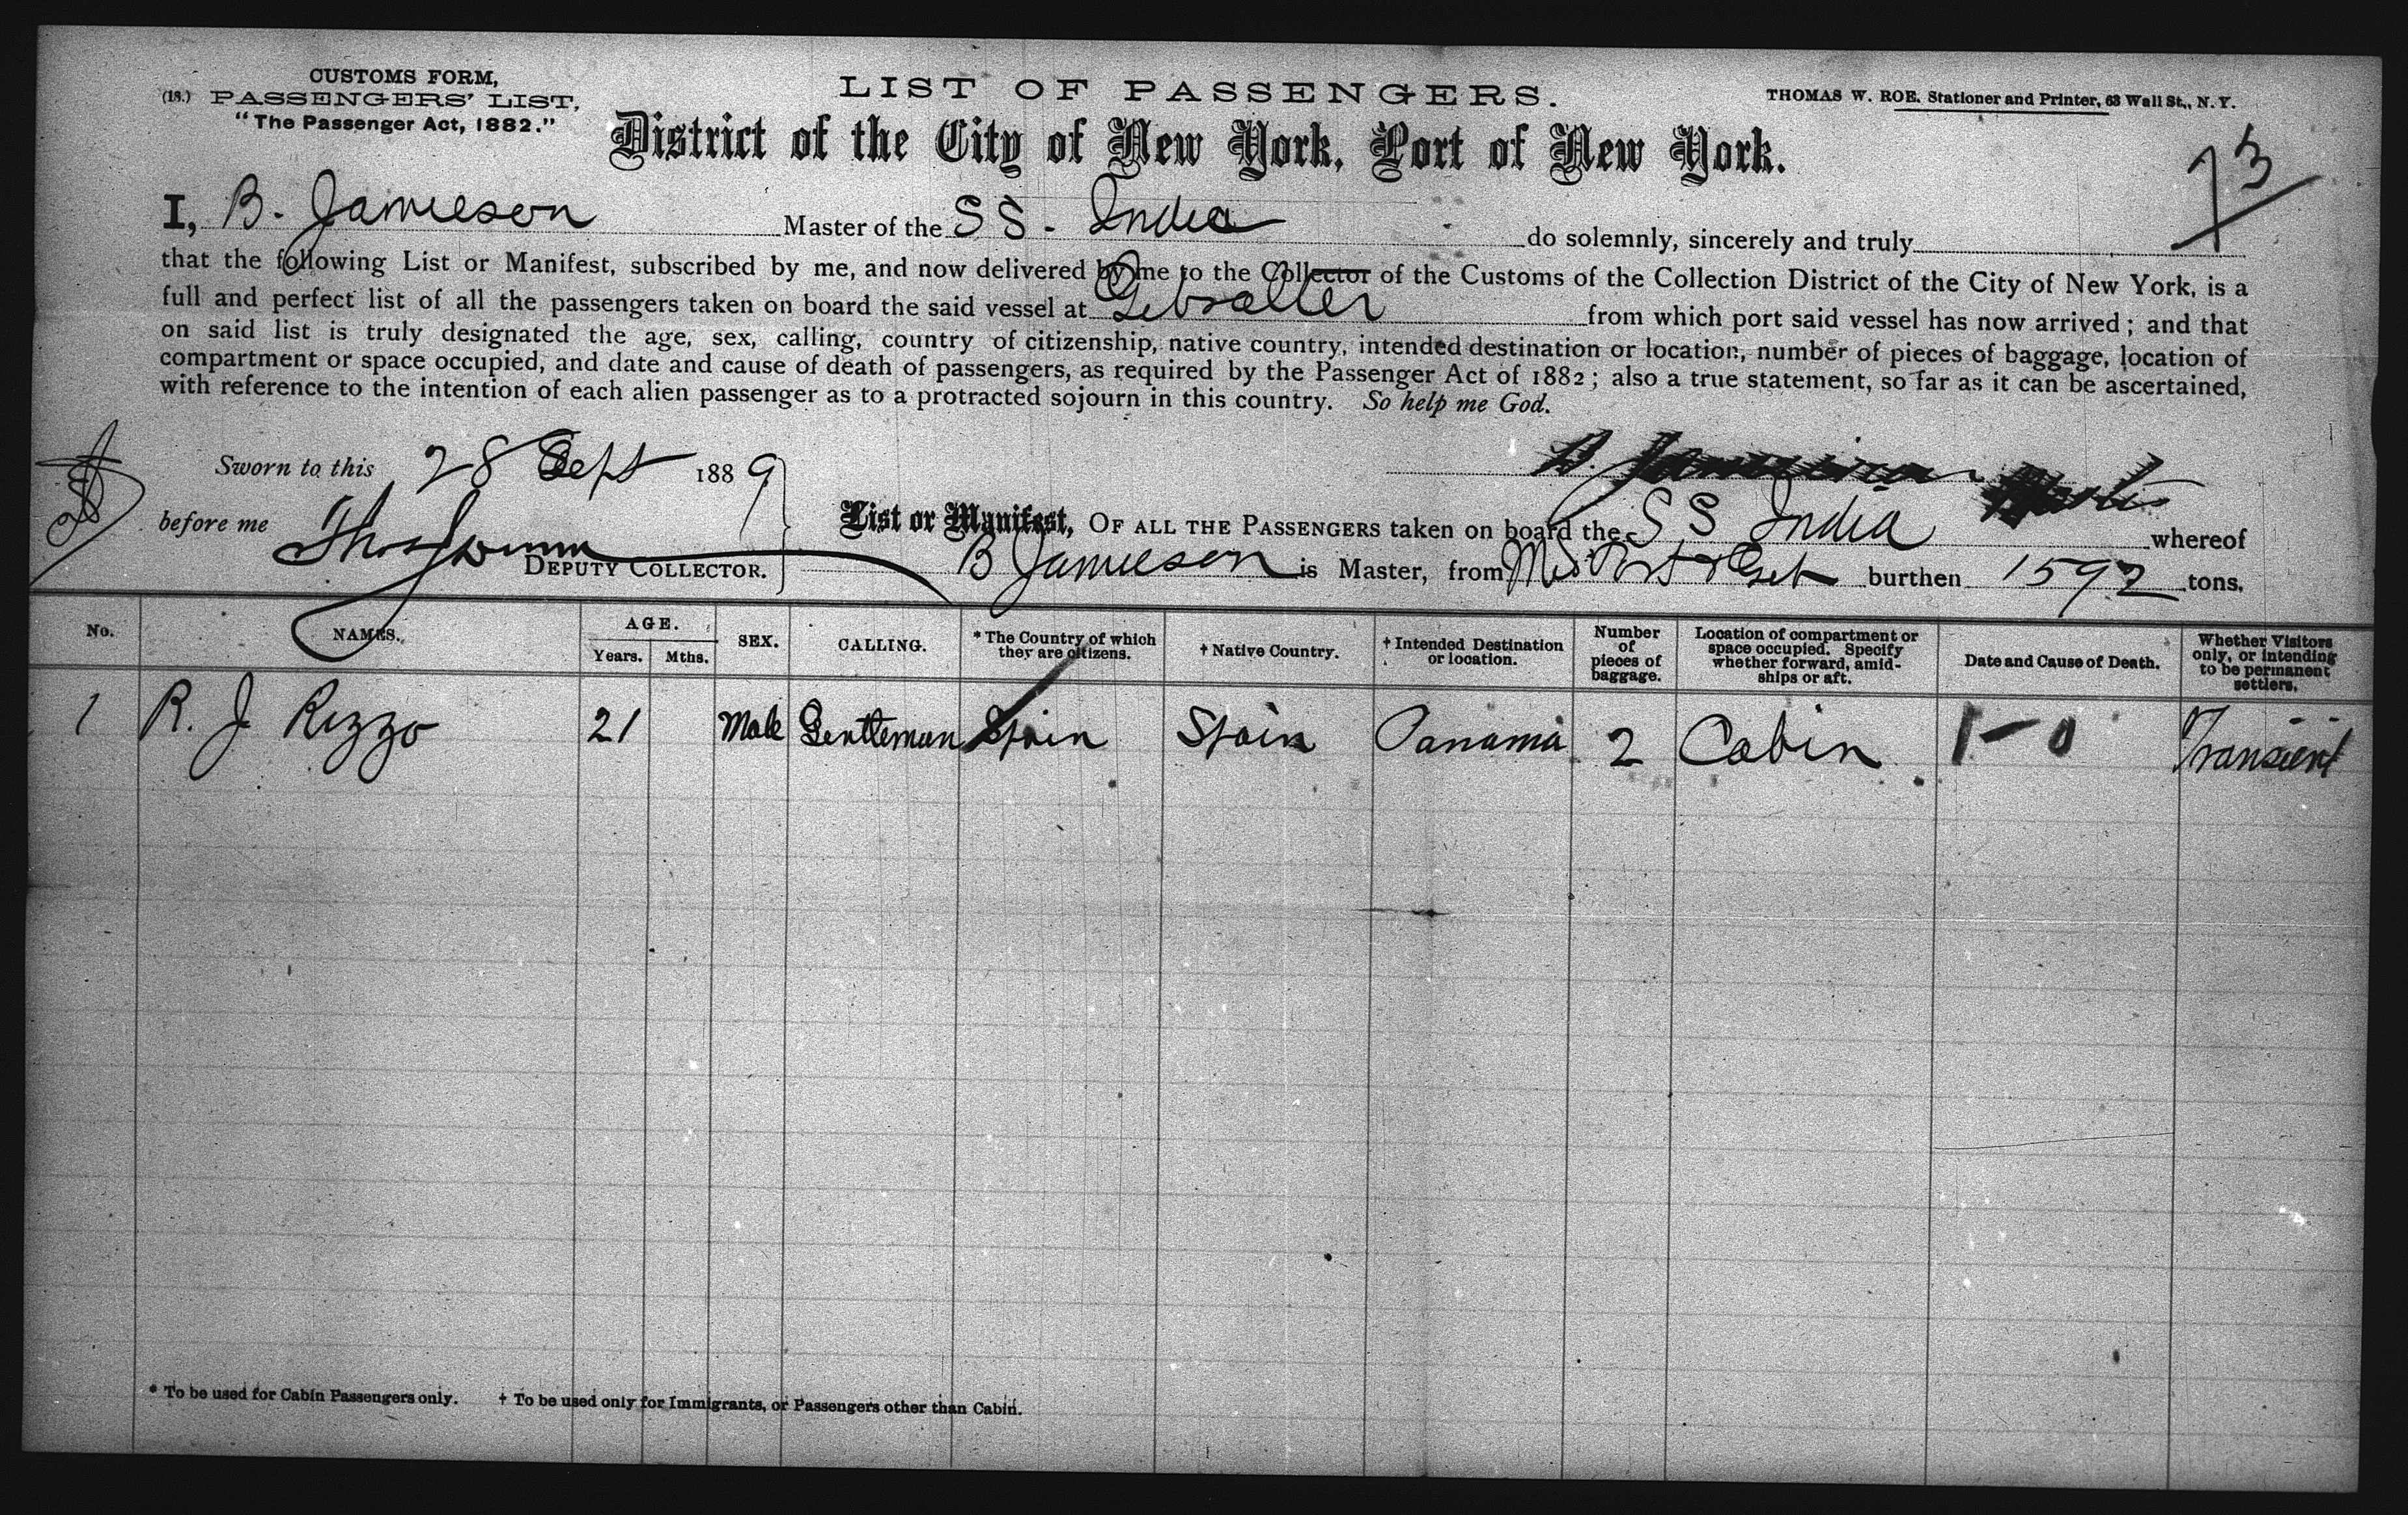 CUSTOMS FORM,
(18.) PASSENGERS' LIST,
"The Passenger Act, 1882."
LIST OF PASSENGERS.
THOMAS W. ROE, Stationer and Printer, 63 Wall St., N. Y.
District of the City of New York, Port of New York.
73
I, B. Jamieson Master of the SS. India do solemnly, sincerely and truly
that the following List or Manifest, subscribed by me, and now delivered by me to the Collector of the Customs of the Collection District of the City of New York, is a
full and perfect list of all the passengers taken on board the said vessel at Gibralter from which port said vessel has now arrived; and that
on said list is truly designated the age, sex, calling, country of citizenship, native country, intended destination or location, number of pieces of baggage, location of
compartment or space occupied, and date and cause of death of passengers, as required by the Passenger Act of 1882; also a true statement, so far as it can be ascertained,
with reference to the intention of each alien passenger as to a protracted sojourn in this country. So help me God.
Sworn to this 28 Sept 1889
B. Jamieson
before me
DEPUTY COLLECTOR.
List or Manifest, OF ALL THE PASSENGERS taken on board the SS India whereof
B Jamieson is Master, from burthen 1592 tons.
No. NAMES. AGE. Years. Mths. SEX. CALLING. * The Country of which they are citizens. † Native Country. † Intended Destination or location. Number of pieces of baggage. Location of compartment or space occupied. Specify whether forward, amidships or aft. Date and Cause of Death. Whether Visitors only, or intending to be permanent settlers.
1 R. J Rizzo 21 Male Gentleman Spain Spain Panama 2 Cabin 1-0 Transient
* To be used for Cabin Passengers only. † To be used only for Immigrants, or Passengers other than Cabin.